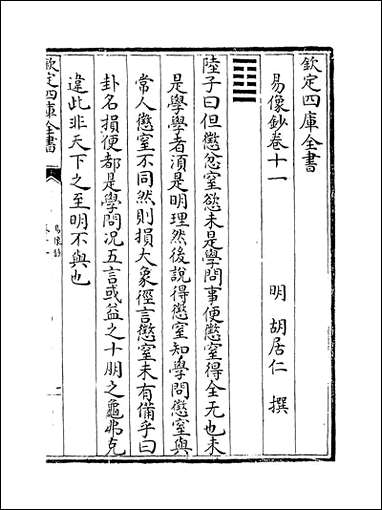 欽定四庫全書
易像鈔卷十一
明 胡居仁 撰
陸子曰但懲忿窒慾未是學問事便懲窒得全无也未
是學學者須是明理然後說得懲窒知學問懲窒與
常人懲窒不同然則損大象徑言懲窒未有備乎曰
卦名損便都是學問况五言或益之十朋之龜弗克
違此非天下之至明不與也
欽定四庫全書
易像鈔